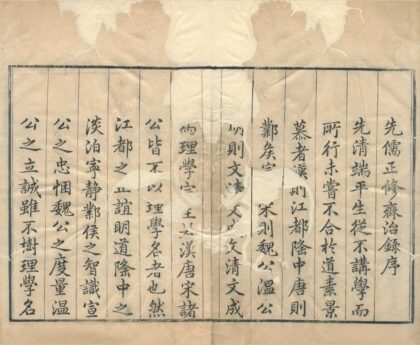 先儒正修齋治錄序
先清端平生從不講學而
所行未嘗不合於道素景
慕者漢則江都隆中唐則
鄴侯宣宋則魏公溫公
則文清文清文成
理學宗主漢唐宋諸
公皆不以理學名者也然
江都之正誼明道隆中之
淡泊寧靜鄴侯之智識宣
公之忠悃魏公之度量溫
公之立誠雖不樹理學名